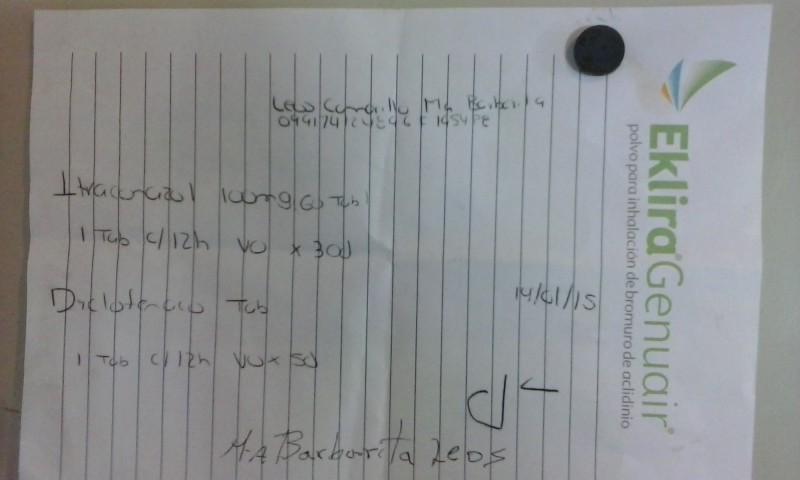 Leos Camarillo Ma Barbarita
Itraconazol 100mg 60 Tab
1 Tab c/12h VO x 30d
Diclofenaco Tab
14/01/15
1 Tab c/12h VO x 5d
Ma Barbarita Leos
Eklira® Genuair®
polvo para inhalación de bromuro de aclidinio